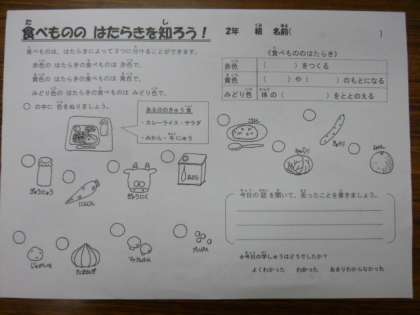 食べものの はたらきを知ろう！
2年　組　名前(　　　　)
食べものは、はたらきによって3つに分けることができます。
赤色のはたらきの食べものは 赤色で、
黄色のはたらきの食べものは 黄色で、
みどり色のはたらきの食べものは みどり色で、
○の中に 色をぬりましょう。
《食べもののはたらき》
赤色 (　　　)をつくる
黄色 (　　　)や(　　　)のもとになる
みどり色 体の(　　　)をととのえる
・カレーライス・サラダ
・みかん・牛にゅう
ぎゅうにゅう
にんじん
ぎゅうにく
きゅうり
じゃがいも
たまねぎ
今日の話を聞いて、思ったことを書きましょう。
☆今日の学しゅうはどうでしたか？
よくわかった　わかった　あまりわからなかった